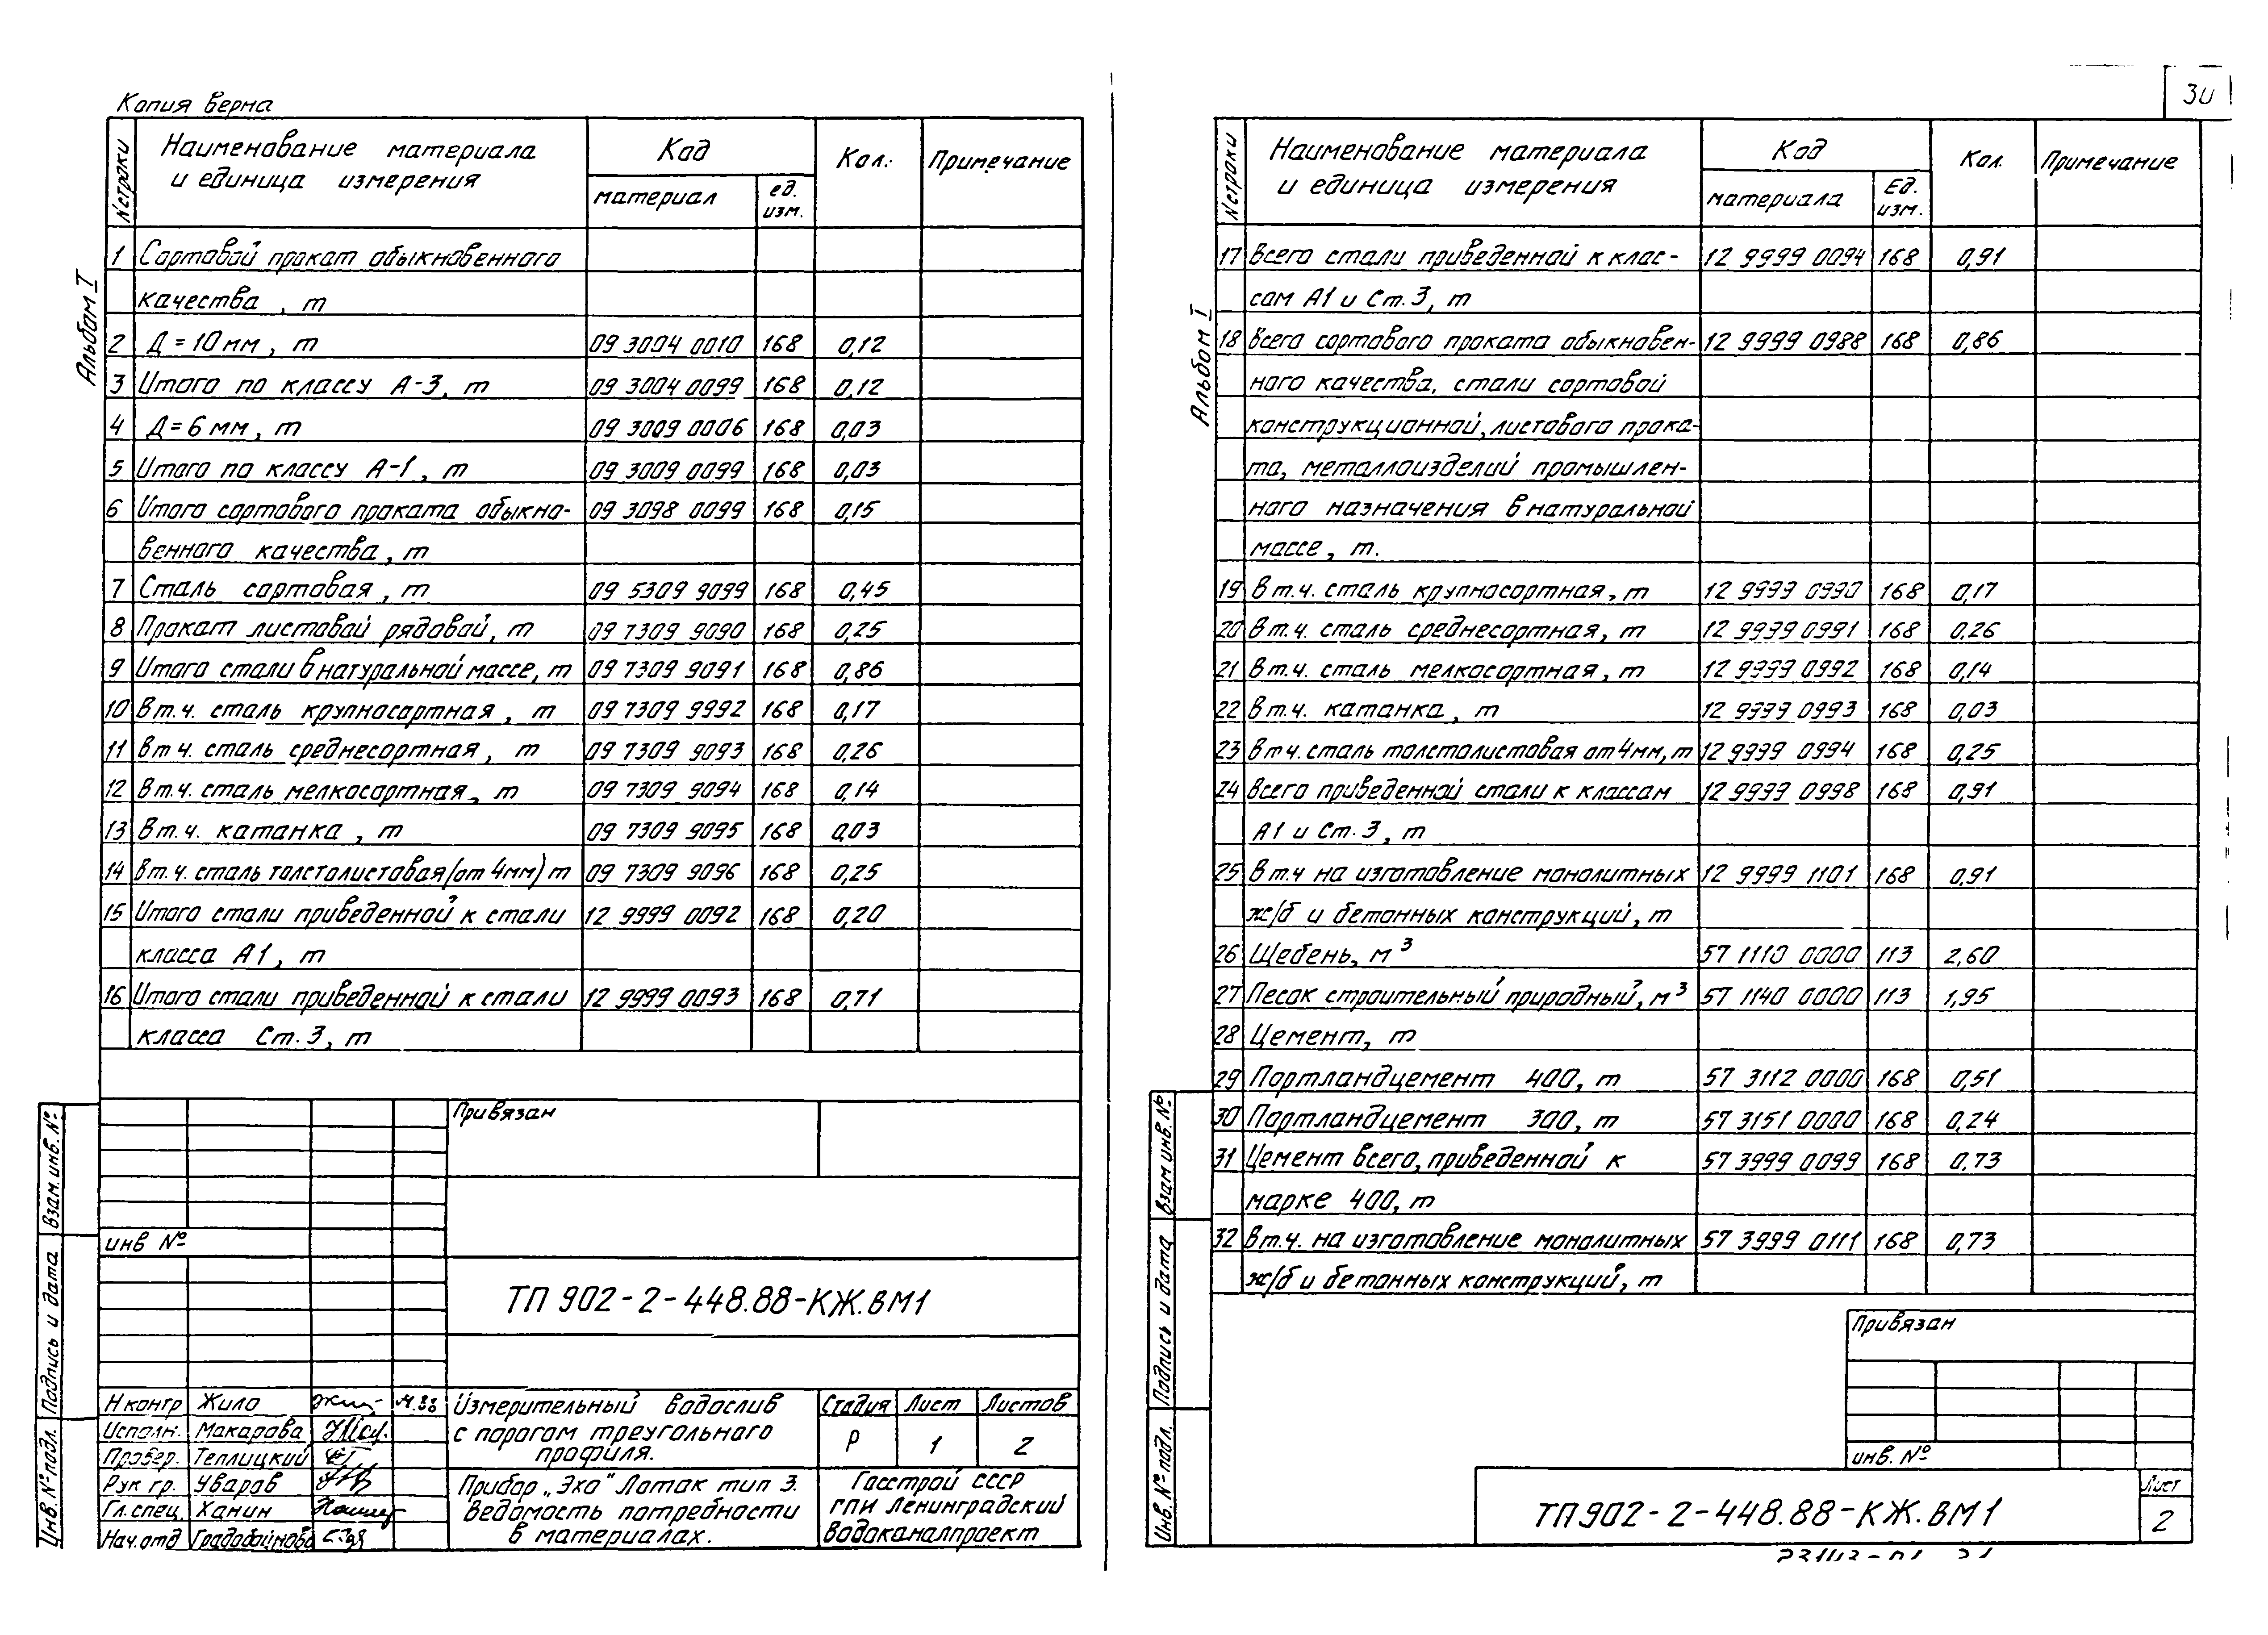 Копия верна
30
Альбом I
№ строки Наименование материала и единица измерения Код Кол. Примечание
материал ед. изм.
1 Сортовой прокат обыкновенного
качества, т
2 Д = 10 мм, т 09 3004 0010 168 0,12
3 Итого по классу А-3, т 09 3004 0099 168 0,12
4 Д = 6 мм, т 09 3009 0006 168 0,03
5 Итого по классу А-1, т 09 3009 0099 168 0,03
6 Итого сортового проката обыкно- 09 3098 0099 168 0,15
венного качества, т
7 Сталь сортовая, т 09 5309 9099 168 0,45
8 Прокат листовой рядовой, т 09 7309 9090 168 0,25
9 Итого стали в натуральной массе, т 09 7309 9091 168 0,86
10 В т.ч. сталь крупносортная, т 09 7309 9992 168 0,17
11 в т ч. сталь среднесортная, т 09 7309 9093 168 0,26
12 В т.ч. сталь мелкосортная, т 09 7309 9094 168 0,14
13 В т.ч. катанка, т 09 7309 9095 168 0,03
14 В т.ч. сталь толстолистовая (от 4мм) т 09 7309 9096 168 0,25
15 Итого стали приведенной к стали 12 9999 0092 168 0,20
класса А1, т
16 Итого стали приведенной к стали 12 9999 0093 168 0,71
класса Ст. 3, т
Привязан
инв №
ТП 902-2-448.88-КЖ.ВМ1
Н контр Жило
Исполн. Макарова
Провер. Теплицкий
Рук гр. Уваров
Гл. спец. Ханин
Нач. отд Градобойнова
Измерительный водослив
с порогом треугольного
профиля.
Стадия Лист Листов
Р 1 2
Прибор „Эхо" Лоток тип 3.
Ведомость потребности
в материалах.
Госстрой СССР
ГПИ Ленинградский
Водоканалпроект
Взам. инв. №
Подпись и дата
Инв. № подл.
Альбом I
№ строки Наименование материала и единица измерения Код Кол. Примечание
материала Ед. изм.
17 Всего стали приведенной к клас- 12 9999 0094 168 0,91
сам А1 и Ст. 3, т
18 всего сортового проката обыкновен- 12 9999 0988 168 0,86
ного качества, стали сортовой
конструкционной, листового прока-
та, металлоизделий промышлен-
ного назначения в натуральной
массе, т.
19 В т.ч. сталь крупносортная, т 12 9999 0990 168 0,17
20 В т.ч. сталь среднесортная, т 12 9999 0991 168 0,26
21 В т.ч. сталь мелкосортная, т 12 9999 0992 168 0,14
22 В т.ч. катанка, т 12 9999 0993 168 0,03
23 в т.ч. сталь толстолистовая от 4мм, т 12 9999 0994 168 0,25
24 Всего приведенной стали к классам 12 9999 0998 168 0,91
А1 и Ст. 3, т
25 В т.ч на изготовление монолитных 12 9999 1101 168 0,91
ж/б и бетонных конструкций, т
26 Щебень, м³ 57 1110 0000 113 2,60
27 Песок строительный природный, м³ 57 1140 0000 113 1,95
28 Цемент, т
29 Портландцемент 400, т 57 3112 0000 168 0,51
30 Портландцемент 300, т 57 3151 0000 168 0,24
31 Цемент всего, приведенной к 57 3999 0099 168 0,73
марке 400, т
32 В т.ч. на изготовление монолитных 57 3999 0111 168 0,73
ж/б и бетонных конструкций, т
Привязан
инв. №
ТП 902-2-448.88-КЖ.ВМ1
Лист
2
Взам инв. №
Подпись и дата
Инв. № подл.